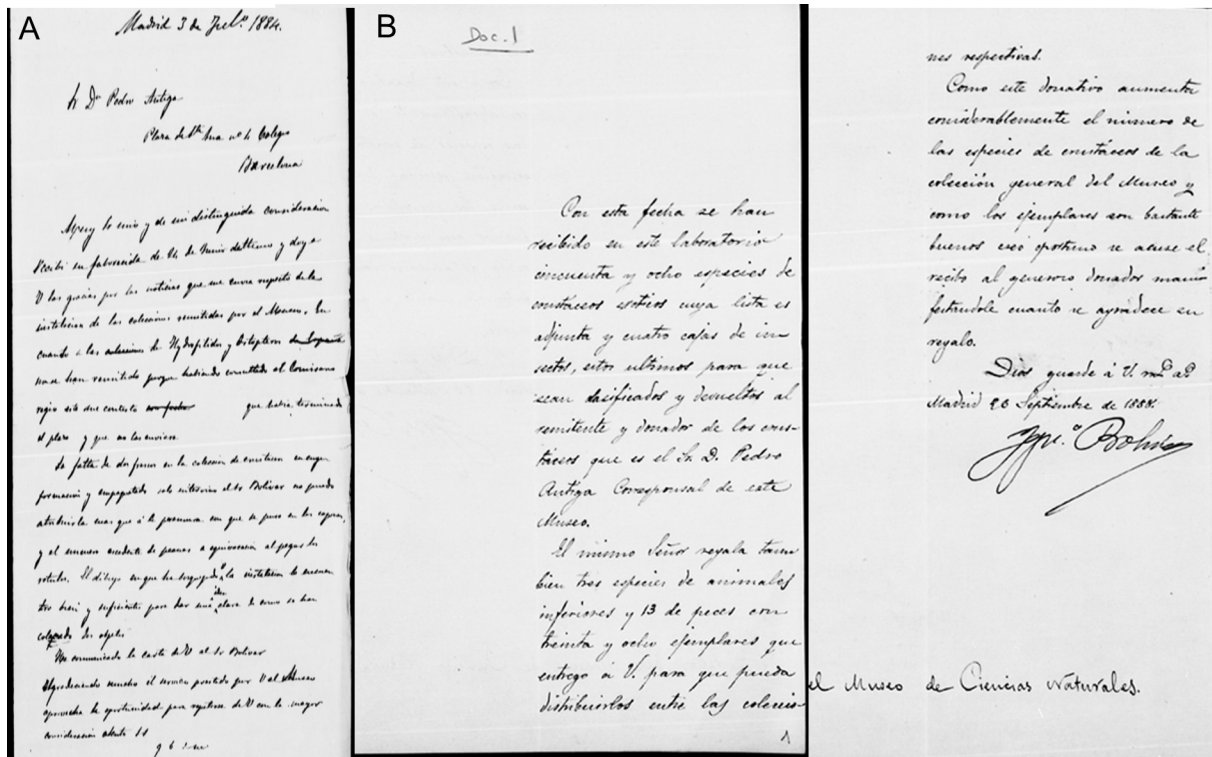 A
Madrid 3 de Jul.º 1884.
Sr Dn Pedro Antiga
Plaza de Sta Ana nº 4 Colegio
Barcelona
Muy Sr mio y de mi distinguida consideracion
Recibi su favorecida de 24 de Junio ultimo y doy a
V las gracias por las noticias que me envia respecto de la
instalacion de las colecciones remitidas por el Museo. En
cuanto a las colecciones de Hydrofilidos y Coleopteros
no se han remitido porque habiendo consultado al Comisario
regio este me contesta que habia terminado
el plazo y que no las enviara.
La falta de dos frascos en la coleccion de crustaceos en cuya
formacion y empaquetado solo intervino el Sr Bolivar no puedo
atribuirla mas que á la premura con que se puso en los cajones,
y el numero excedente de peanas a equivocacion al pegar los
rotulos. El dibujo en que ha la instalacion lo encuen
tro bien y suficiente para dar una idea clara de como se han
colocado los objetos
He comunicado la carta de V al Sr Bolivar
Agradeciendo mucho el servicio prestado por V al Museo
aprovecho la oportunidad para repetirse de V con la mayor
consideracion atento SS
B
Doc. 1
Con esta fecha se han
recibido en este laboratorio
cincuenta y ocho especies de
crustáceos exóticos cuya lista es
adjunta y cuatro cajas de in
sectos, estos ultimos para que
sean clasificados y devueltos al
remitente y donador de los crus-
táceos que es el Sr. D. Pedro
Antiga Corresponsal de este
Museo.
El mismo Señor regala tam
bien tres especies de animales
inferiores y 13 de peces con
treinta y ocho ejemplares que
entrego á V. para que pueda
distribuirlos entre las coleccio-
1
nes respectivas.
Como este donativo aumenta
considerablemente el número de
las especies de crustáceos de la
colección general del Museo y
como los ejemplares son bastante
buenos creo oportuno se acuse el
recibo al generoso donador mani
festándole cuanto se agradece su
regalo.
Dios guarde á V. ms. as.
Madrid 26 Septiembre de 1888.
Ign.º Bolivar
el Museo de Ciencias Naturales.